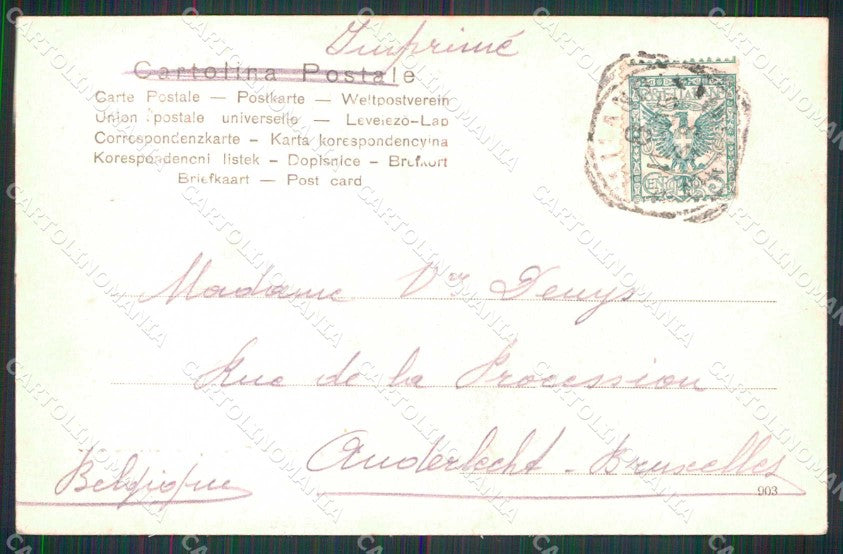 Imprimé
Cartolina Postale
Carte Postale — Postkarte — Weltpostverein
Union postale universelle — Levelező-Lap
Correspondenzkarte - Karta korespondencyjna
Korespondencni listek - Dopisnice - Brefkort
Briefkaart — Post card
Madame Vve Denys
Rue de la Procession
Anderlecht - Bruxelles
Belgique
903
CARTOLINOMANIA